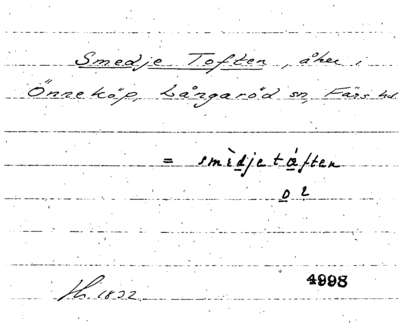 Smedje Toften, åker i
Önneköp, Långaröd sn, Färs hd.
= smìdje táften
o 2
4998